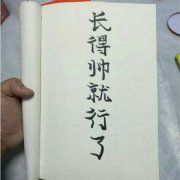 长得帅就行了